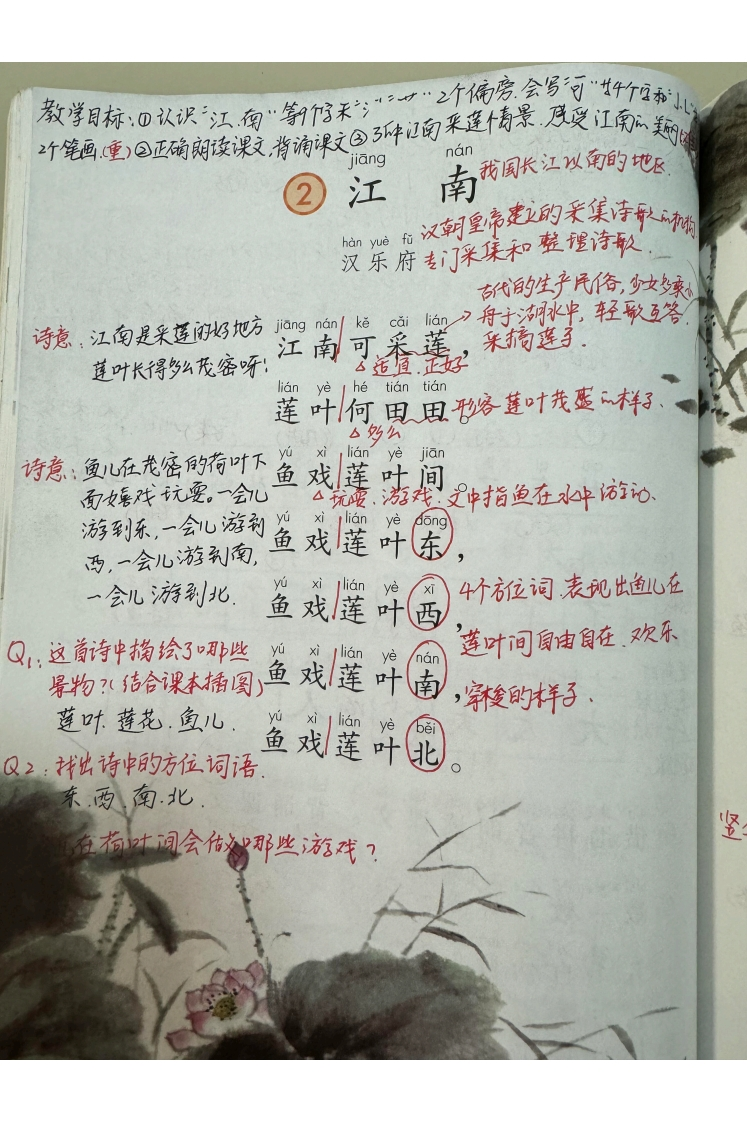 教学目标:①认识“江、南”等9个字和“氵”“艹”2个偏旁.会写“可”等4个字和
2个笔画.(重)②正确朗读课文,背诵课文③了解江南采莲情景.感受江南的美丽
jiāng nán
② 江 南 我国长江以南的地区.
hàn yuè fǔ
汉乐府
汉朝皇帝建立的采集诗歌的机构
专门采集和整理诗歌.
古代的生产民俗,少女多乘小
舟于湖水中,轻歌互答.
采摘莲子.
诗意:江南是采莲的好地方
莲叶长得多么茂密呀!
jiāng nán kě cǎi lián
江南可采莲,
△适宜.正好
lián yè hé tián tián
莲叶何田田。 形容莲叶茂盛的样子.
△多么
诗意:鱼儿在茂密的荷叶下
面嬉戏玩耍。一会儿
游到东,一会儿游到
西,一会儿游到南,
一会儿游到北.
yú xì lián yè jiān
鱼戏莲叶间。
△玩耍.游戏.文中指鱼在水中游动.
yú xì lián yè dōng
鱼戏莲叶东,
yú xì lián yè xī
鱼戏莲叶西,
4个方位词.表现出鱼儿在
莲叶间自由自在.欢乐
穿梭的样子.
Q1:这首诗中描绘了哪些
景物?(结合课本插图)
莲叶.莲花.鱼儿.
yú xì lián yè nán
鱼戏莲叶南,
yú xì lián yè běi
鱼戏莲叶北。
Q2:找出诗中的方位词语.
东.西.南.北.
在荷叶间会做哪些游戏?
竖